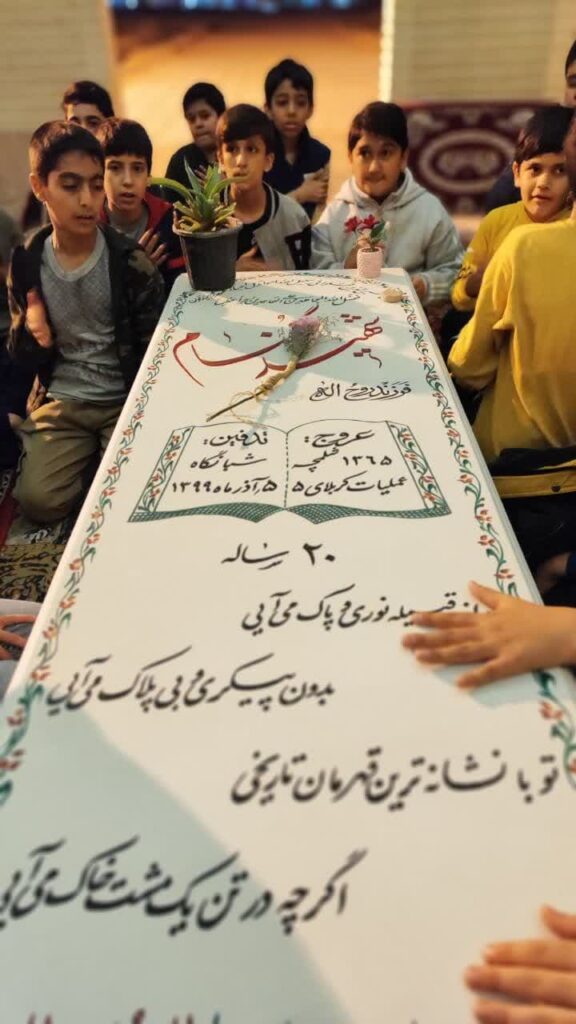 شهید گمنام
فرزند روح الله
عروج:
۱۳۶۵ شلمچه
عملیات کربلای ۵
تدفین:
شبانگاه
۵ آذر ماه ۱۳۹۹
۲۰ ساله
از قبیله نوری و پاک می‌آیی
بدون پیکری و بی پلاک می‌آیی
تو با نشانه ترین قهرمان تاریخی
اگرچه در تن یک مشت خاک می‌آیی